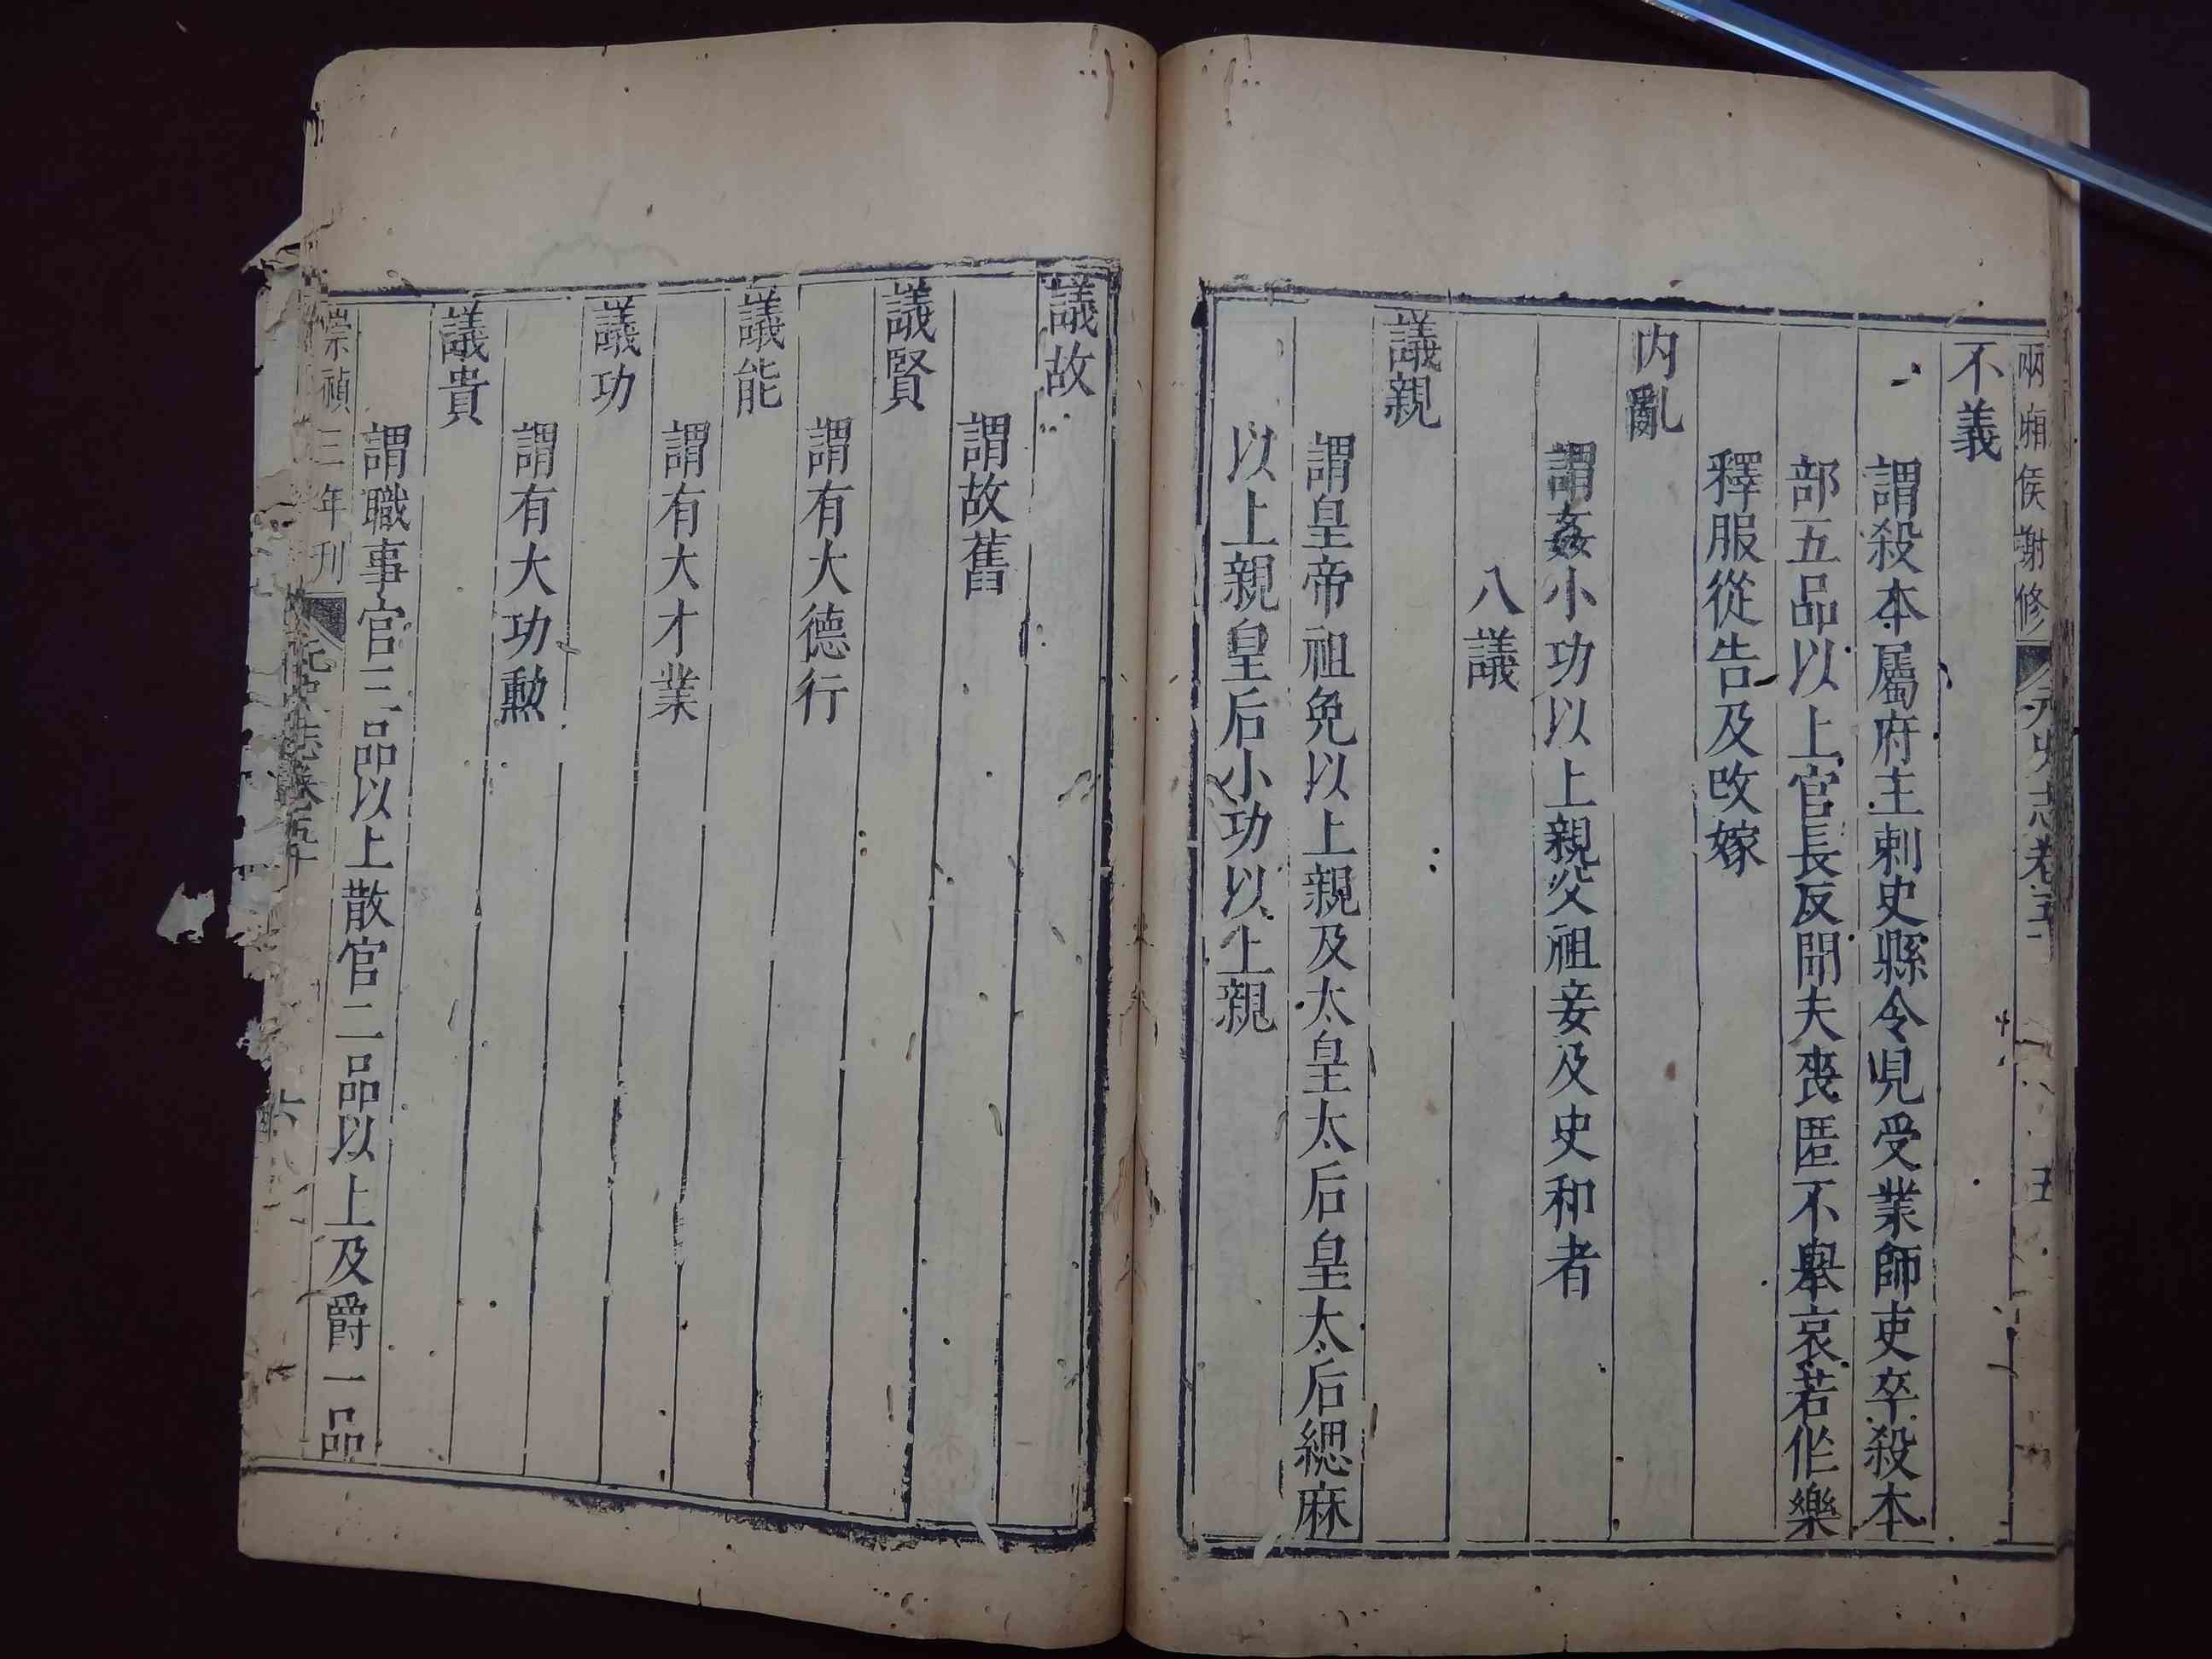 兩廂侯謝修
元史志卷五十
五
不義
謂殺本屬府主刺史縣令見受業師吏卒殺本
部五品以上官長及聞夫喪匿不舉哀若作樂
釋服從吉及改嫁
內亂
謂姦小功以上親父祖妾及史和者
八議
議親
謂皇帝祖免以上親及太皇太后皇太后緦麻
以上親皇后小功以上親
議故
謂故舊
議賢
謂有大德行
議能
謂有大才業
議功
謂有大功勲
議貴
謂職事官三品以上散官二品以上及爵一品
崇禎三年刊
元史志卷五十
六